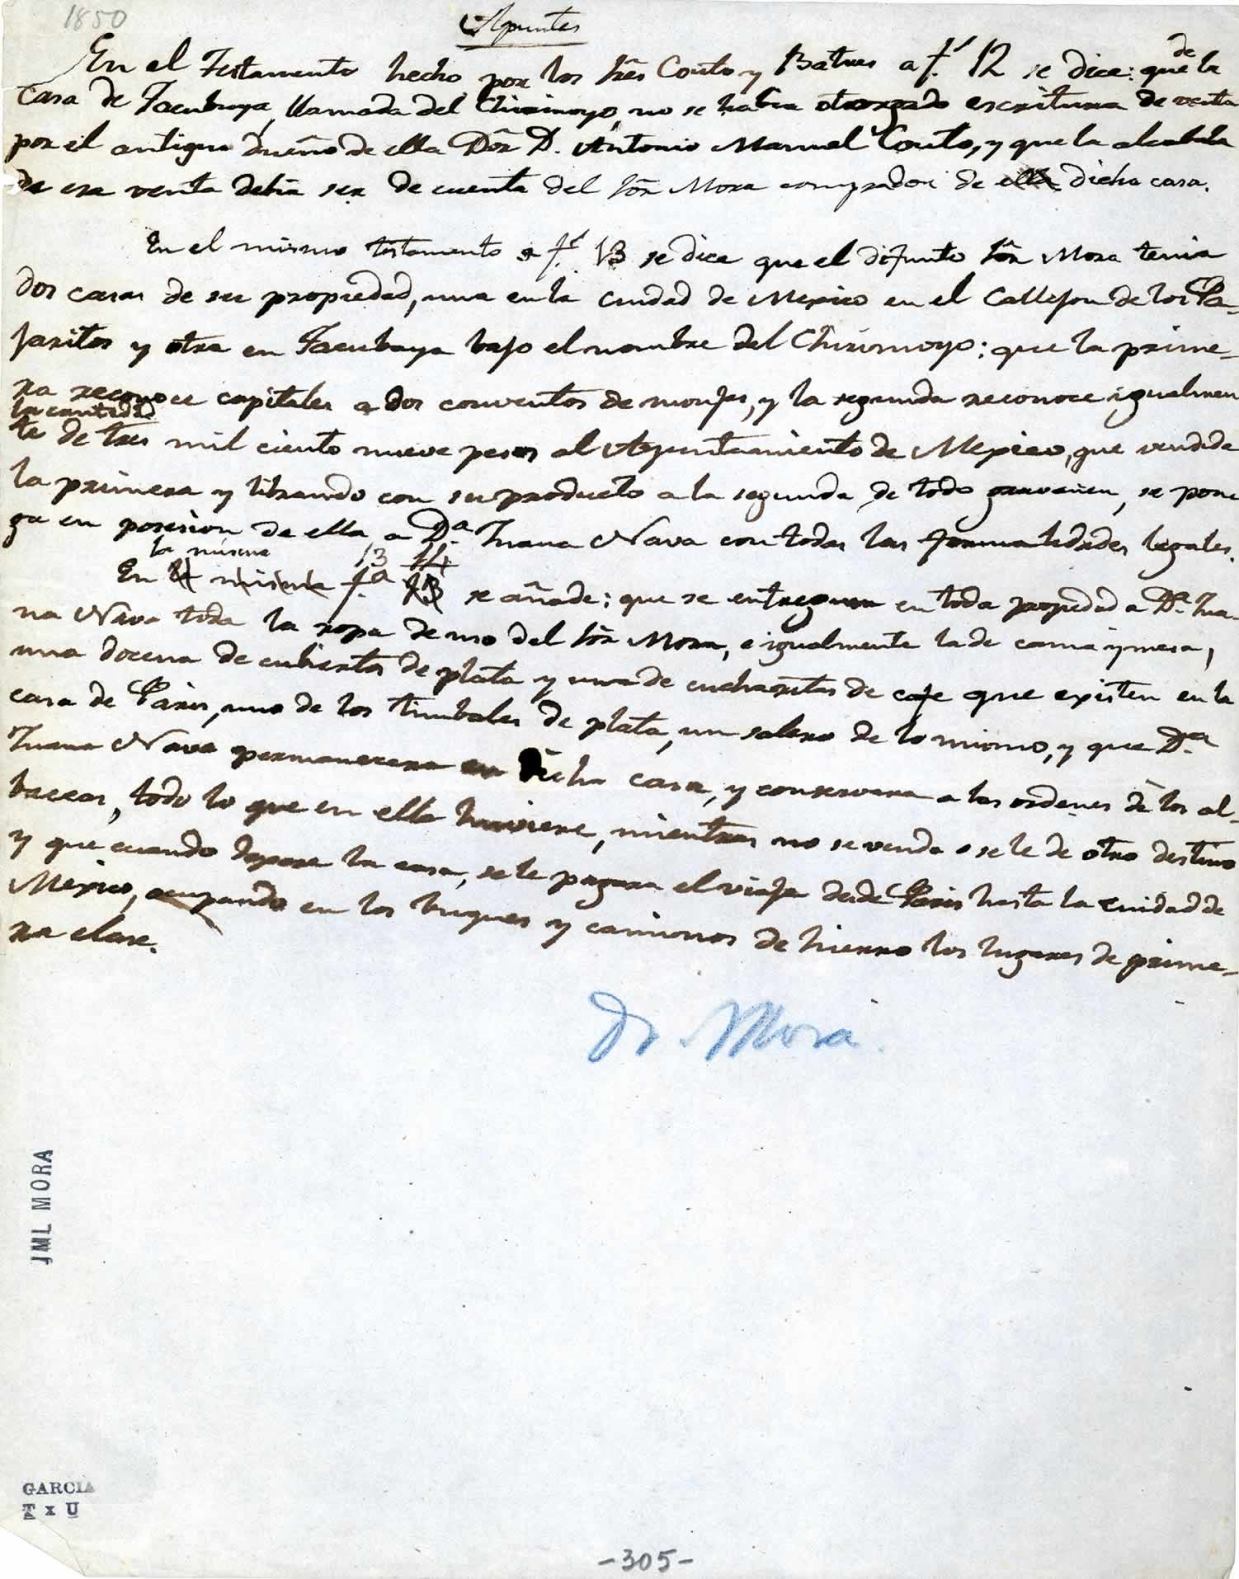 1850
Apuntes
En el Testamento hecho por los Sres Couto y Batres a f.s 12 se dice: que de la
casa de Tacubaya, llamada del Chirimoyo, no se habia otorgado escritura de venta
por el antiguo dueño de ella Dor D. Antonio Manuel Couto, y que la alcabala
de esa venta debia ser de cuenta del Sor Mora comprador de ella dicha casa.
En el mismo testamento a f.s 13 se dice que el difunto Sor Mora tenia
dos casas de su propiedad, una en la ciudad de Mexico en el Callejon de los Pa-
jaritos y otra en Tacubaya bajo el nombre del Chirimoyo: que la prime-
ra reconoce capitales a dos conventos de monjas, y la segunda reconoce igualmen
la cantidad
te de tres mil ciento nueve pesos al Ayuntamiento de Mexico, que vendida
la primera y librando con su producto a la segunda de todo gravamen, se pon
ga en posesion de ella a Da. Juana Nava con todas las formalidades legales.
la misma 13 14
En el misma f.a 13 se añade: que se entreguen en toda propiedad a Da. Jua-
na Nava toda la ropa de uso del Sor Mora, e igualmente la de cama y mesa,
una docena de cubiertos de plata y una de cucharitas de cafe que existen en la
casa de Paris, uno de los timbales de plata, un salero de lo mismo, y que Da
Juana Nava permanecera en dicha casa, y conservara a las ordenes de los al-
baceas, todo lo que en ella huviere, mientras no se venda o se le de otro destino
y que cuando deje la casa, se le pagara el viaje desde Paris hasta la ciudad de
Mexico, ocupando en los buques y caminos de hierro los lugares de prime-
ra clase.
Dr. Mora.
JML MORA
GARCIA
T x U
-305-